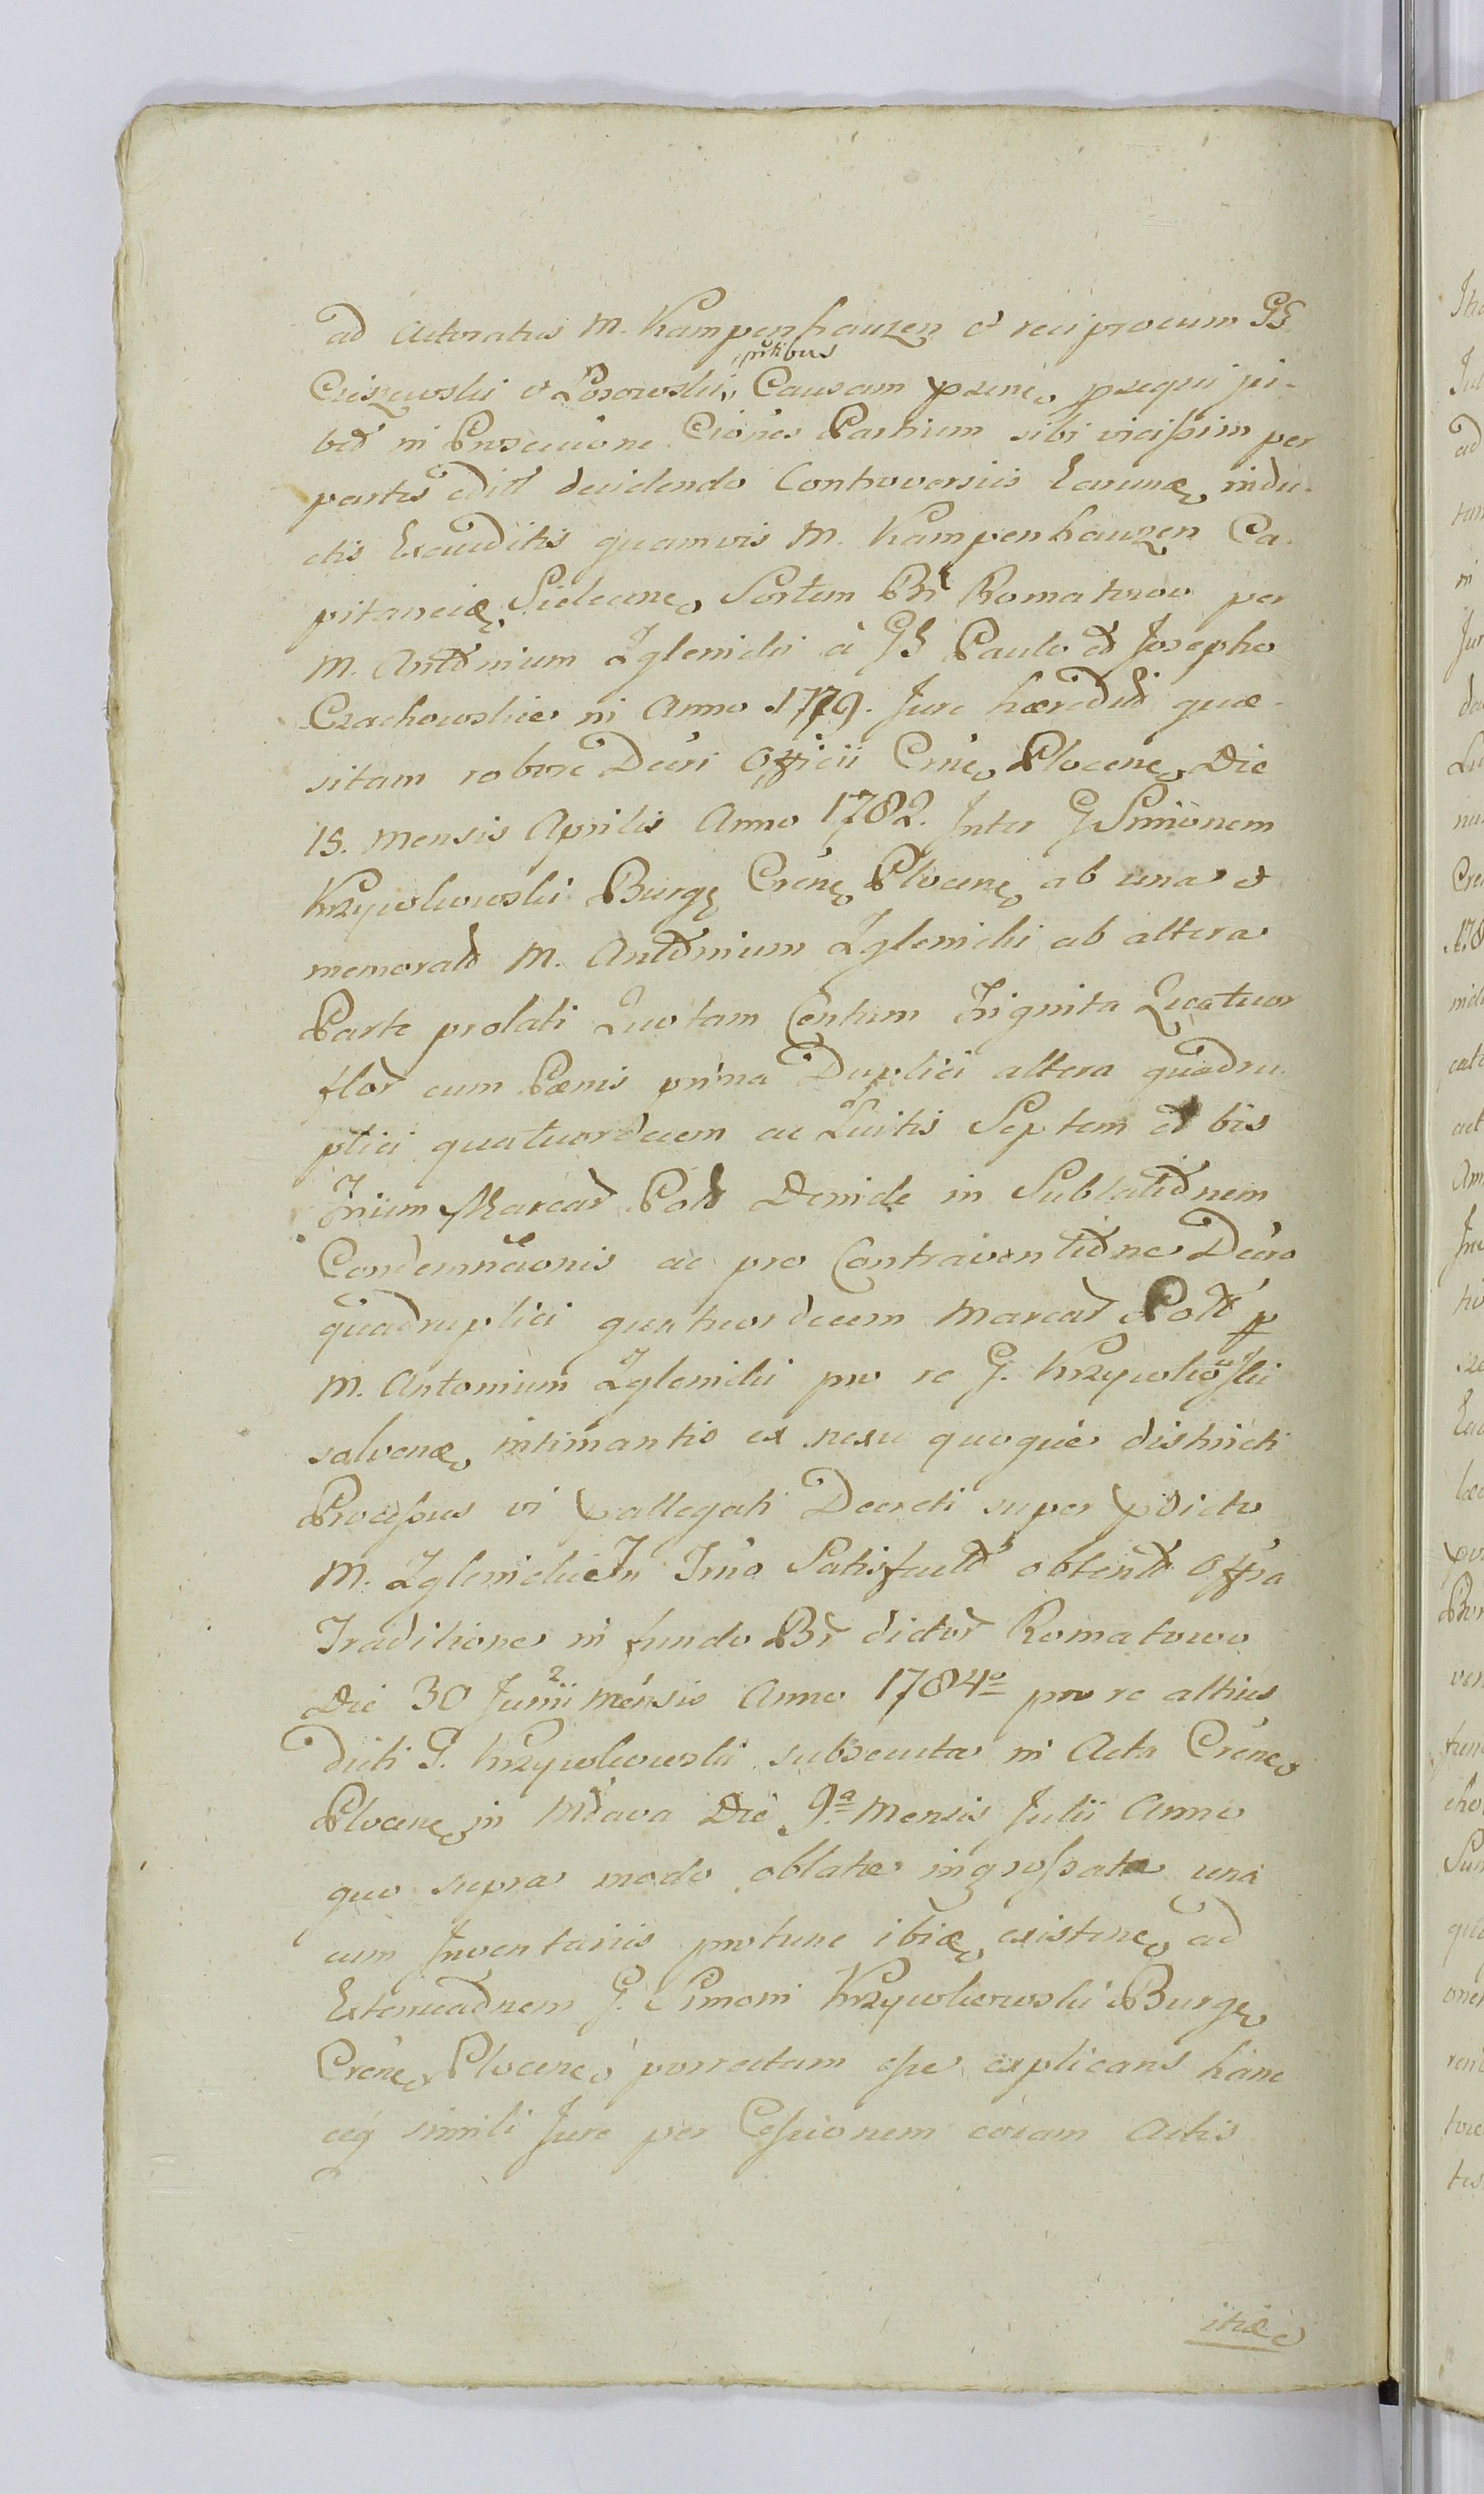 ad Actoratus M. Kampenhauzen et reciprocum GG
Ciszewski et Łosowski, Causam prsne, prsequi ju-
ptibus
bet in Prosecuione Ciones Partium sibi vicissim per
partes edit decidendo Controversiis Earunde indu-
ctis Exauditis quamvis M. Kampenhauzen Ca-
pitaneide Sielecine, Sortem Br Romatowo per
M. Antonium Zglenicki à GG Paulo et Josepho
Czachowskie in Anno 1779. Jure hæredit quæ-
sitam robore Decri Officii Crne, Plocene, Die
15. Mensis Aprilis Anno 1782. Inter G Simonem
Krzywkowski Burge Crene, Plocene, ab una et
memorat M. Antonium Zglenicki ab altera
Parte prolati Quotam Centum Triginta Quatuor
flor cum Pœnis prima Duplici altera quadru-
plici quatuordecem ac Luitis Septem et bis
Trium Marcar Pol Deinde in Sublationem
Condemnationis ac pro Contraventione Decro
quadruplici quatuordecem Marcar Pol p
M. Antonium Zglenicki pro re G. Krzywkowski
salvenæ, intimantis ex nexu quoque districti
Processus vi pallegati Decreti super pdicto
M. Zglenicki In Imo Satisfact obtent Offra
Traditione in fundo Br dictor Romatowo
Die 30 Junii Mensis Anno 1784o pro re altius
dicti G. Krzywkowski subsecuta in Acta Crene,
Plocene, in Mława Die 9a Mensis Julii Anno
quo supra modo oblatæ ingrossata una
cum Inventariis protunc ibide, existene, ad
Extenuadnem G. Simoni Krzywkowski Burge,
Crene, Plocene, porrectam esse explicans hanc
aeq simili Jure per Cessionem coram Actis
itide